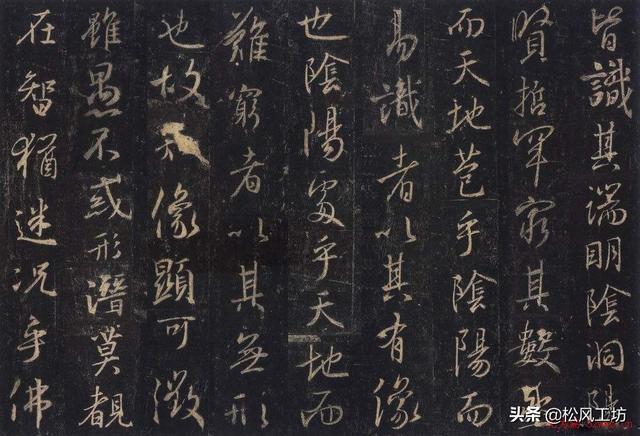 皆識其端明陰洞陽
賢哲罕窮其數然
而天地苞乎陰陽而
易識者以其有像
也陰陽處乎天地而
難窮者以其無形
也故知像顯可徵
雖愚不惑形潛莫覩
在智猶迷況乎佛
头条 @松风工坊